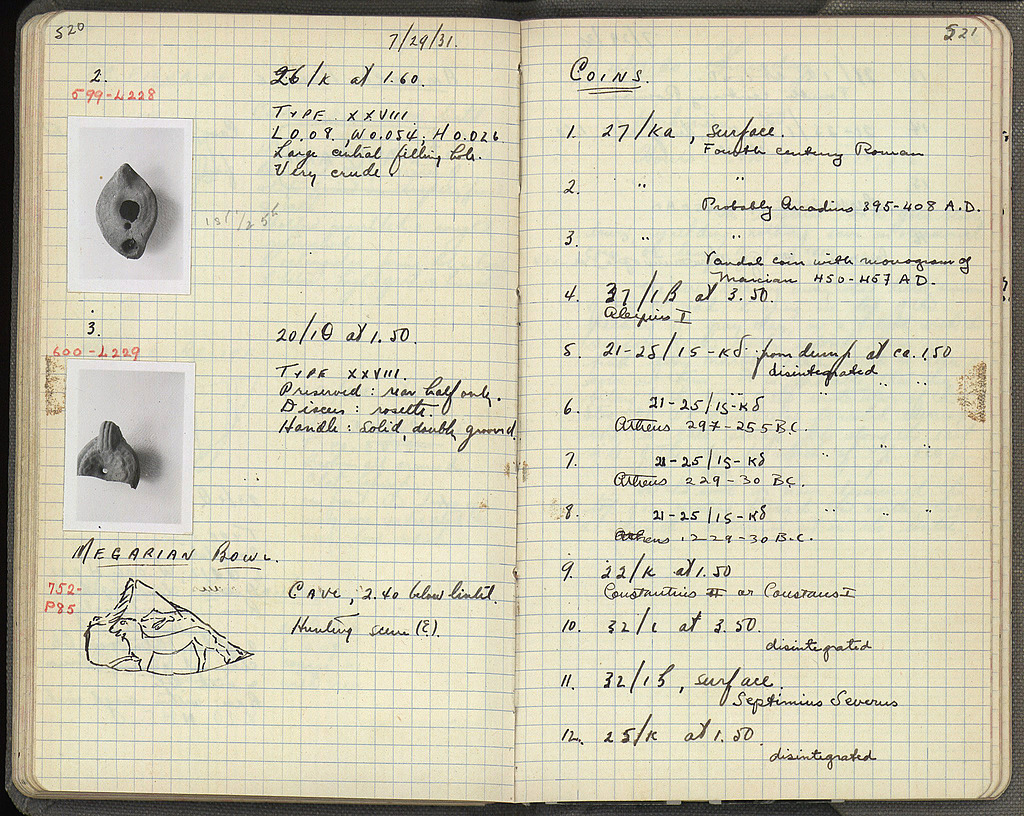 520
7/29/31.
2.
599-L228
26/K at 1.60.
TYPE XXVIII
L 0.08, W 0.054, H 0.026
Large central filling hole.
Very crude
3.
600-L229
20/ΙΘ at 1.50.
TYPE XXVIII.
Preserved: rear half only.
Discus: rosette.
Handle: solid, double grooved.
MEGARIAN BOWL.
752-
P85
CAVE, 2.40 below lintel.
Hunting scene (?).
521
COINS.
1. 27/Ka, surface.
Fourth century Roman
2. " "
Probably Arcadius 395-408 A.D.
3. " "
Vandal coin with monogram of
Marcian 450-457 A.D.
4. 37/ΙΒ at 3.50.
Alexius I
5. 21-25/15-Κδ from dump at ca. 1.50
disintegrated
6. 21-25/15-Κδ " " "
Athens 297-255 B.C.
7. 21-25/15-Κδ " " "
Athens 229-30 B.C.
8. 21-25/15-Κδ " " "
Athens 229-30 B.C.
9. 22/K at 1.50
Constantius II or Constans I
10. 32/ι at 3.50.
disintegrated
11. 32/ιβ, surface
Septimius Severus
12. 25/K at 1.50
disintegrated